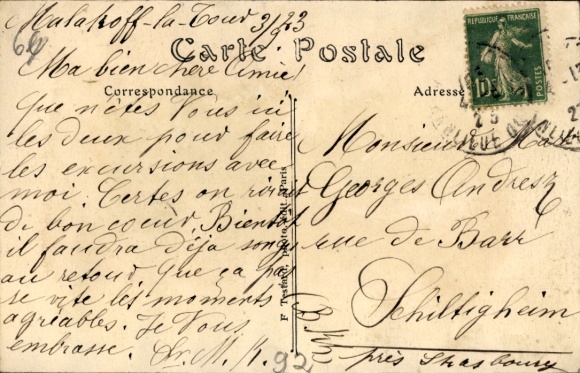 Malakoff-la-Tour 3/8 23
69
Carte Postale
Correspondance
Adresse
REPUBLIQUE FRANÇAISE
10c
POSTES
Ma bien chère Amie!
Que n'êtes Vous ici
les deux pour faire
les excursions avec
moi. Certes on rirait
de bon coeur. Bientôt
il faudra déjà songer
au retour que ça passe
se vite les moments
agréables. Je Vous
embrasse.
92
F Testard, photo édit, Paris
Monsieur
Georges Andresz
rue de Barr
Schiltigheim
près Strasbourg